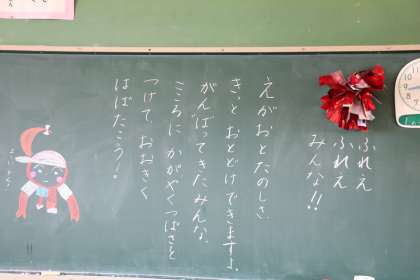 ふれえ
ふれえ
みんな!!
えがおとたのしさ
きっと おとどけできますよ。
がんばってきたみんな、
こころに かがやくつばさを
つけて おおきく
はばたこう!